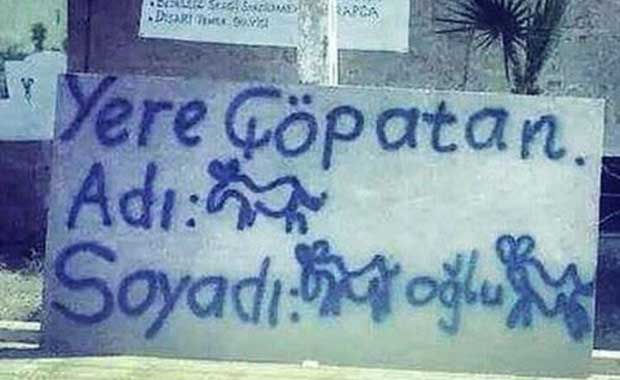 DIŞARI YEMEK SERVİSİ
Yere Çöpatan.
Adı:
Soyadı: oğlu